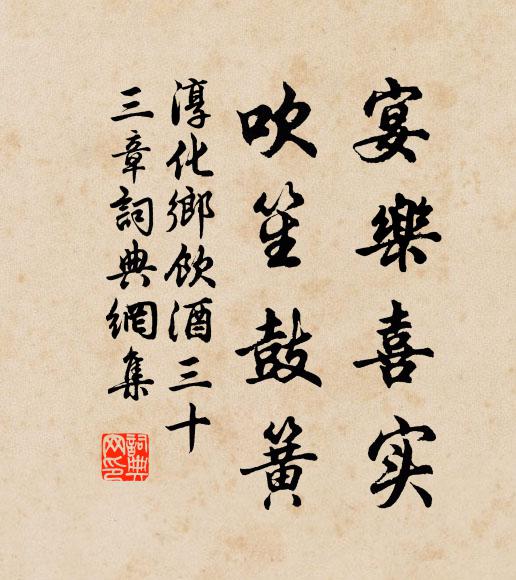 宴樂喜实
吹笙鼓簧
淳化鄉飲酒三十
三章詞典網集
詞典网印